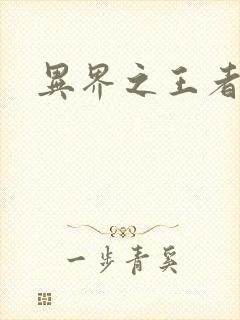 異界之王者
一步青奚